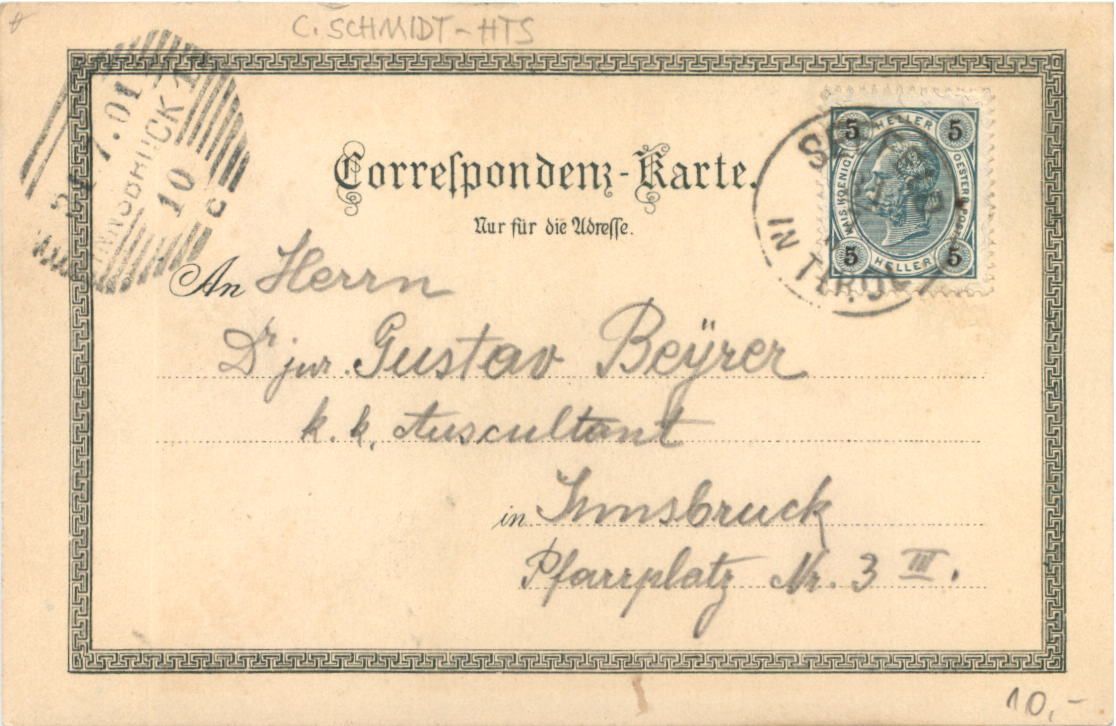 C. SCHMIDT-HTS
7.01
INNSBRUCK 1
10
C
Correspondenz-Karte.
Nur für die Adresse.
5 HELLER 5
KAIS. KOENIGL. OESTERR. POST
5 HELLER 5
IN TIROL
An Herrn
Dr jur. Gustav Beÿrer
k. k. Auscultant
in Innsbruck
Pfarrplatz Nr. 3 III.
10,-